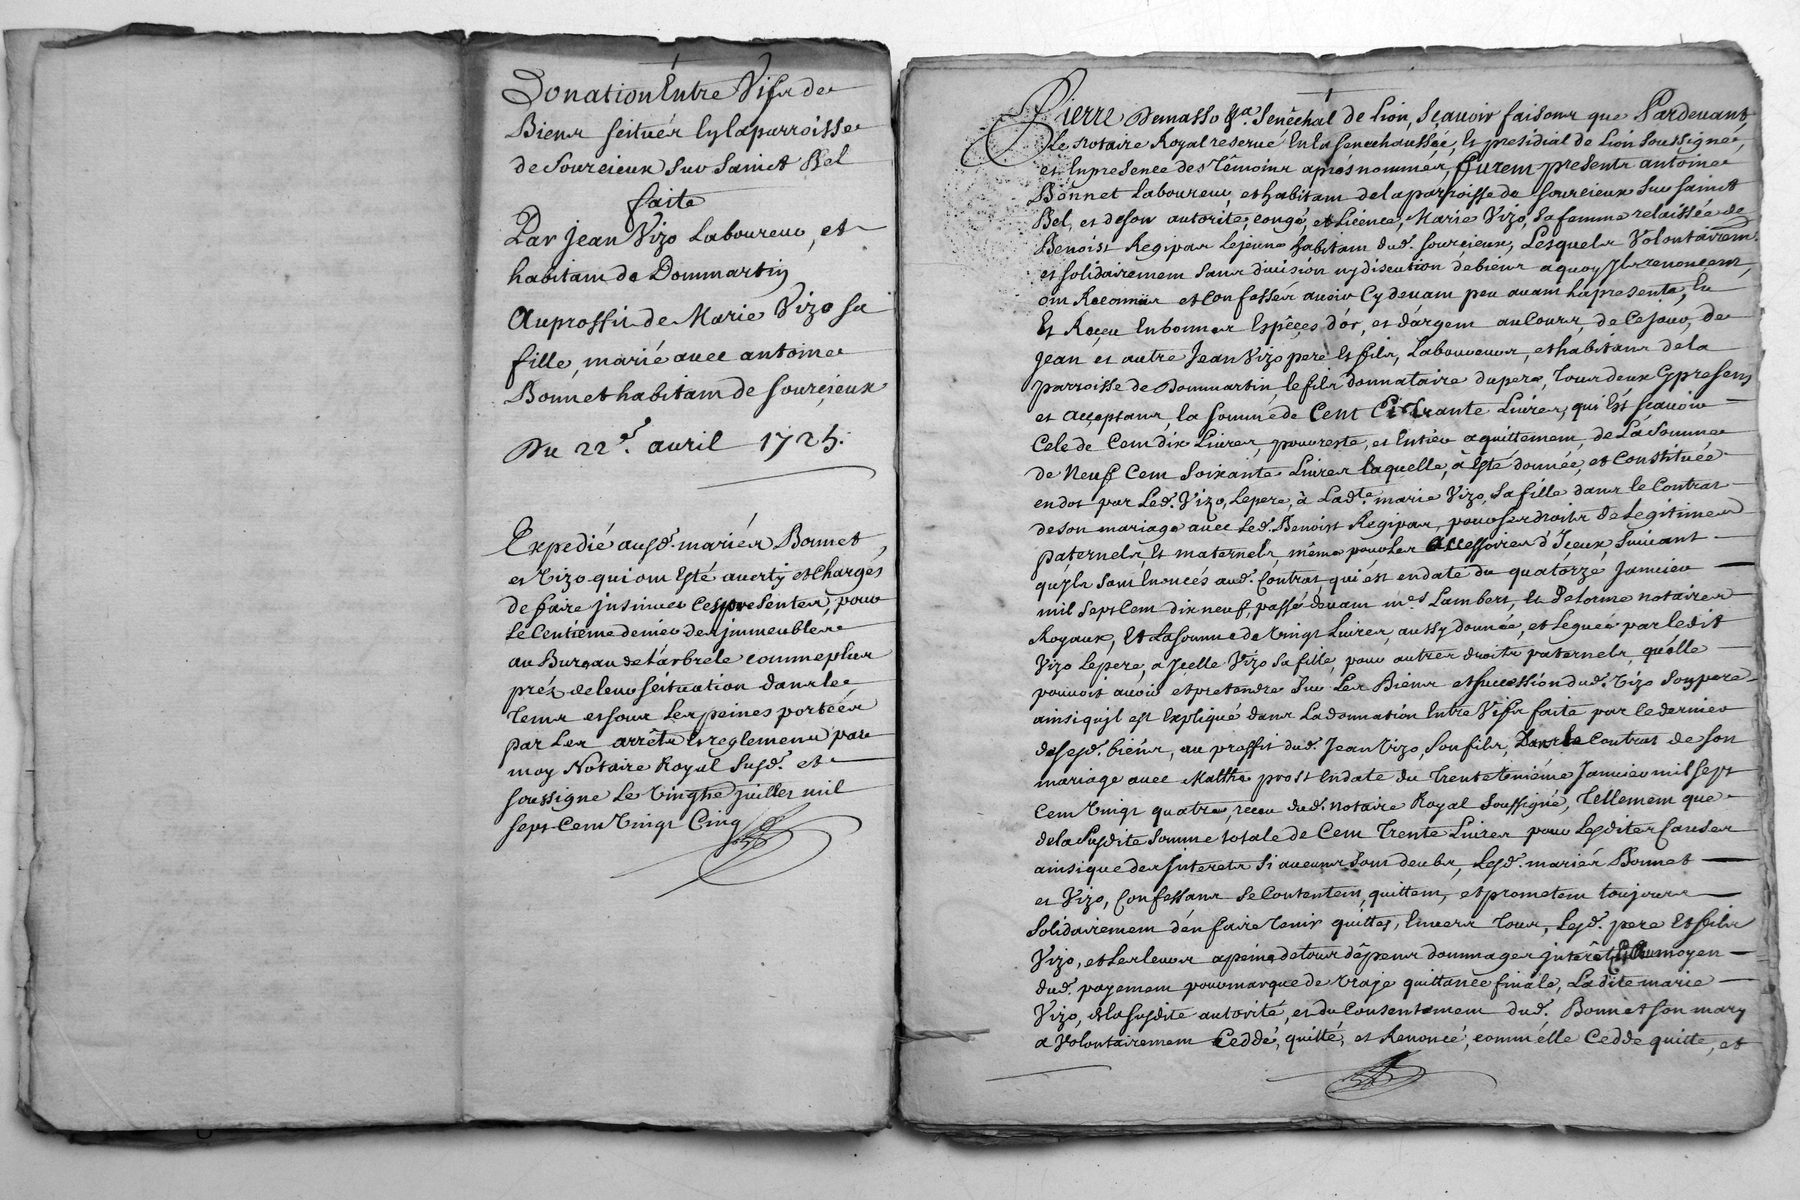 Donation Entre Vifs de
Biens scitués En la parroisse
de Sourcieux Sur Sainct Bel
faite
Par Jean Vizo Laboureur, et
habitant de Dommartin
Au proffit de Marie Vizo sa
fille, marié avec antoine
Bonnet habitant de Sourcieux
Du 22e. avril 1725.
Expedié ausd. mariés Bonnet,
et Vizo qui ont Esté averty et Chargés
de faire insinuer Ces presentes, pour
Le Centieme denier des immeubles
au Bureau de Larbrele comme plus
prés de leur scituation dans le
tems et sous Les peines portées
par Les arrêts Et reglemens par
moy Notaire Royal Susd. et
soussigne Le Vingt juillet mil
sept Cent Vingt Cinq
Pierre Demasso &a. Senéchal de Lion, Sçavoir faisons que Pardevant
Le Notaire Royal reservé En la senechaussée, Et presidial de Lion soussigné,
et En presence des Témoins aprés nommés, furent presents antoine
Bonnet Laboureur, et habitant de la parroisse de Sourcieux Sur Sainct
Bel, et de son autorité, congé, et Licence, Marie Vizo, Sa femme relaissée de
Benoist Regipas Lejeune habitant dud. Sourcieux, Lesquels Volontairemt.
et solidairement sans division ny discution de biens a quoy Ils renoncent,
ont Reconnus et Confessés avoir Cy devant peu avant La presente, Eu
Et Reçeu En bonnes Espêçes d'or, et d'argent au Cours de Ce jour, de
Jean et autre Jean Vizo pere Et fils, Laboureurs, et habitans de la
parroisse de Dommartin, le fils donnataire du pere, tous deux Cy presens
et acçeptans, la somme de Cent Trante Livres, qui Est sçavoir
Cele de Cent dix Livres, pour reste, et Entier aquittement, de La Somme
de Neuf Cent Soixante Livres laquelle, à Esté donnée, et Constituée
en dot par Led. Vizo, Le pere, à Ladte. marie Vizo, Sa fille dans le Contrat
de son mariage avec Led. Benoist Regipas, pour ses droits de Legitimes
paternels, Et maternels, même pour Les accessoires d'Iceux, suivant
qu'Ils sont Enoncés aud. Contrat qui est en date du quatorze Janvier
mil Sept Cent dix neuf, passé devant mes. Lambert, Et Delorme notaires
Royaux, Et La somme de Vingt Livres, aussy donnée, et Leguée par ledit
Vizo Le pere, a Jcelle Vizo Sa fille, pour autres droits paternels, qu'elle
pouvoit avoir et pretendre Sur Les Biens et Succession dud. Vizo Son pere
ainsi qu'il est Expliqué dans La donnation Entre Vifs faite par Ce dernier
de sesd. biens, au proffit dud. Jean Vizo, Son fils, Dans Le Contrat de Son
mariage avec Matthe prost En date du Trente Unième Janvier mil sept
Cent Vingt quatre, reçeu dud. notaire Royal Soussigné, Tellement que
de la Susdite Somme totale de Cent Trente Livres pour Lesdites Causes
ainsi que des Interets Si aucuns Sont deubs, Lesd. mariés Bonnet
et Vizo, Confessans Se Contentent, quittent, et prometent toujours
Solidairement d'en faire Tenir quittes, Envers Tous, Lesd. pere Et fils
Vizo, et Les Leurs a peine de tous dépens dommages interêts Et au moyen
dud. payement pour marque de Vraje quittance finale, La dite marie
Vizo, de la susdite autorité, et du Consentement dud. Bonnet son mary
a Volontairement Ceddé, quitté, et Renoncé, comm'elle Cedde quitte, et